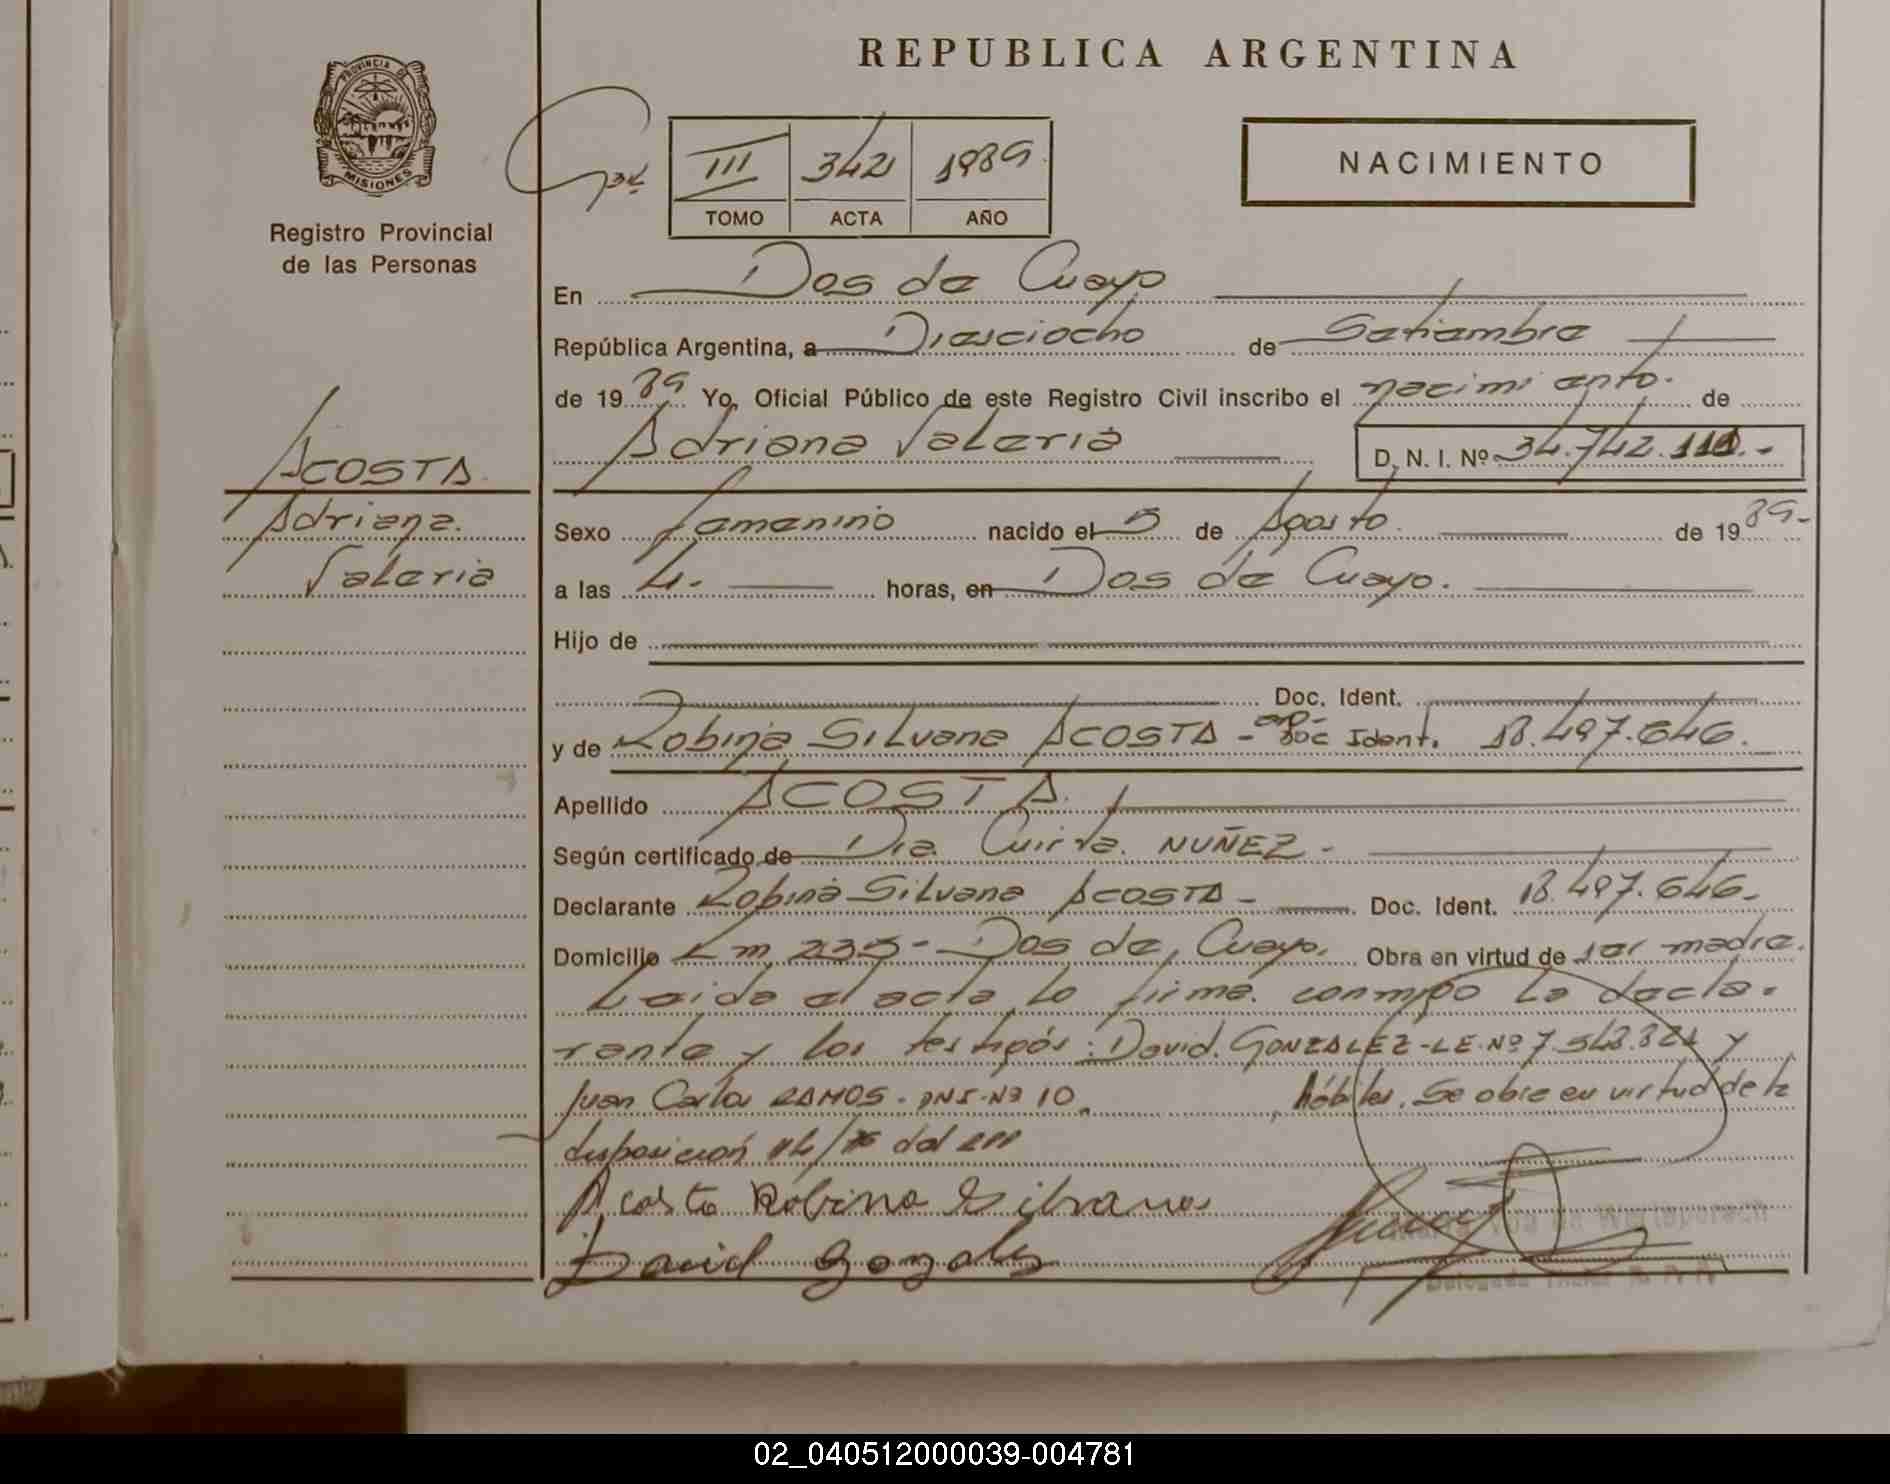 REPUBLICA ARGENTINA
PROVINCIA DE
MISIONES
Registro Provincial
de las Personas
III 342 1989
TOMO ACTA AÑO
NACIMIENTO
En Dos de Mayo
República Argentina, a Diesciocho de Setiembre
de 1989 Yo, Oficial Público de este Registro Civil inscribo el nacimiento. de
Adriana Valeria D. N. I. Nº 34.742.111.-
ACOSTA.
Adriana.
Valeria
Sexo Femenino nacido el 5 de Agosto. de 1989-
a las 4. horas, en Dos de Mayo.
Hijo de
Doc. Ident.
y de Robina Silvana ACOSTA - Doc Ident. 18.497.646.
Apellido ACOSTA.
Según certificado de Dra. Mirta. NUÑEZ-
Declarante Robina Silvana ACOSTA- Doc. Ident. 18.497.646-
Domicilio Km 235- Dos de Mayo. Obra en virtud de ser madre.
Leida el acta lo firma conmigo la decla-
rante y los testigos: David. GONZALEZ-LE-Nº 7.548.821 y
Juan Carlos RAMOS. DNI-Nº 10. hábiles. Se obre en virtud de la
disposición del
Acosta Robina Silvana
David Gonzales
Delegada Titular R. P. P.
02_040512000039-004781